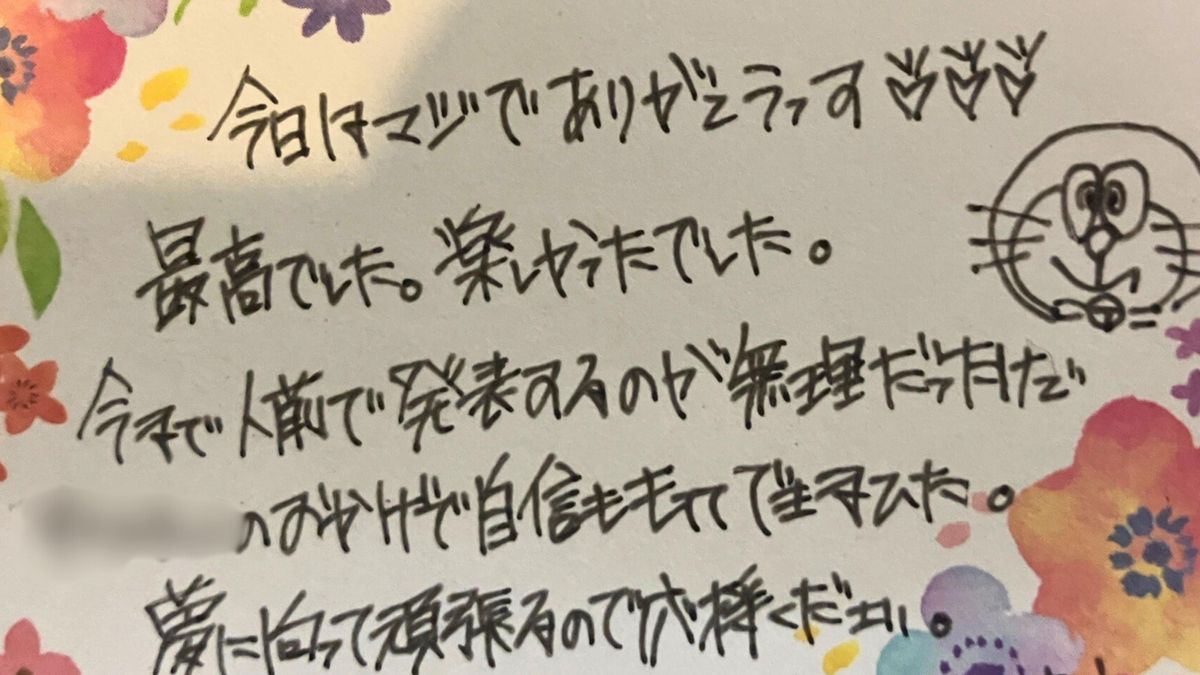 今日はマジでありがとうっす♡♡♡
最高でした。楽しかったでした。
今まで人前で発表するのが無理だったけど
のおかげで自信をもってできました。
夢に向って頑張るので応援ください。